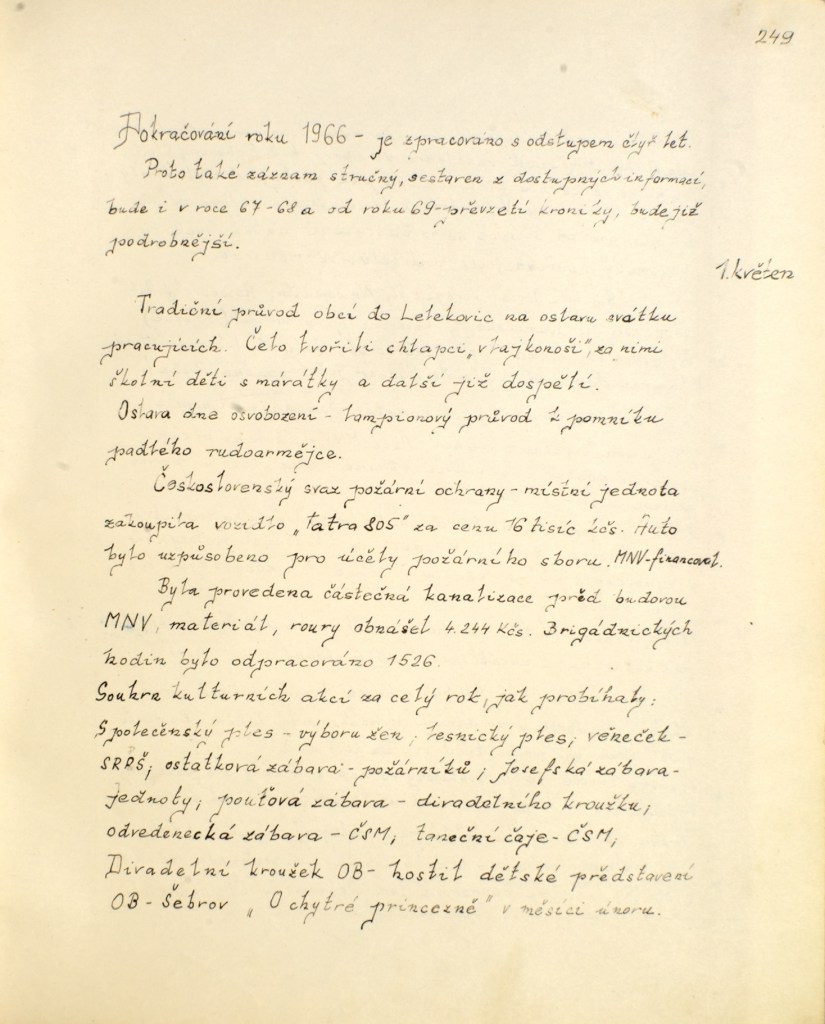 249
Pokračování roku 1966 - je zpracováno s odstupem čtyř let.
Proto také záznam stručný, sestaven z dostupných informací,
bude i v roce 67-68 a od roku 69-převzetí kroniky, bude již
podrobnější.
1. květen
Tradiční průvod obcí do Lelekovic na oslavu svátku
pracujících. Čelo tvořili chlapci „vlajkonoši", za nimi
školní děti s mávátky a další již dospělí.
Oslava dne osvobození - lampionový průvod k pomníku
padlého rudoarmějce.
Československý svaz požární ochrany - místní jednota
zakoupila vozidlo „Tatra 805" za cenu 16 tisíc kčs. Auto
bylo uzpůsobeno pro účely požárního sboru. MNV-financoval.
Byla provedena částečná kanalizace před budovou
MNV, materiál, roury obnášel 4.244 Kčs. Brigádnických
hodin bylo odpracováno 1526.
Souhrn kulturních akcí za celý rok, jak probíhaly:
Společenský ples - výboru žen; lesnický ples; věneček -
SRPŠ; ostatková zábava - požárníků; Josefská zábava -
jednoty; pouťová zábava - divadelního kroužku;
odvedenecká zábava - ČSM; taneční čaje - ČSM;
Divadelní kroužek OB - hostil dětské představení
OB - Šebrov „O chytré princezně" v měsíci únoru.